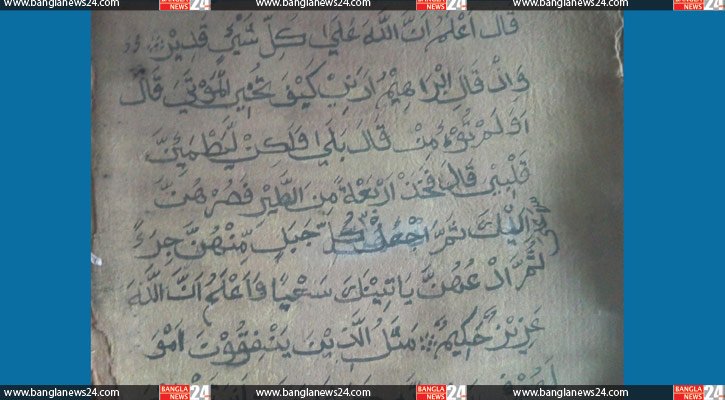 www.banglanews24.com BANGLA NEWS 24 .com www.banglanews24.com BANGLA NEWS 24 .com www.banglanews24.com
قَالَ اَعْلَمُ اَنَّ اللّٰهَ عَلٰي كُلِّ شَيْئٍ قَدِيْرٌ
وَاِذْ قَالَ اِبْرَاهِيْمُ اَرِنِيْ كَيْفَ تُحْيِ الْمَوْتٰي قَالَ
اَوَلَمْ تُؤْمِنْ قَالَ بَلٰي وَلٰكِنْ لِّيَطْمَئِنَّ
قَلْبِيْ قَالَ فَخُذْ اَرْبَعَةً مِّنَ الطَّيْرِ فَصُرْهُنَّ
اِلَيْكَ ثُمَّ اجْعَلْ كُلِّ جَبَلٍ مِّنْهُنَّ جُزْءً
ثُمَّ ادْعُهُنَّ يَاتِيْنَكَ سَعْيًا وَاعْلَمْ اَنَّ اللّٰهَ
عَزِيْزٌ حَكِيْمٌ مَثَلُ الَّذِيْنَ يَنْفِقُوْنَ اَمْوَ
www.banglanews24.com BANGLA NEWS 24 .com www.banglanews24.com BANGLA NEWS 24 .com www.banglanews24.com